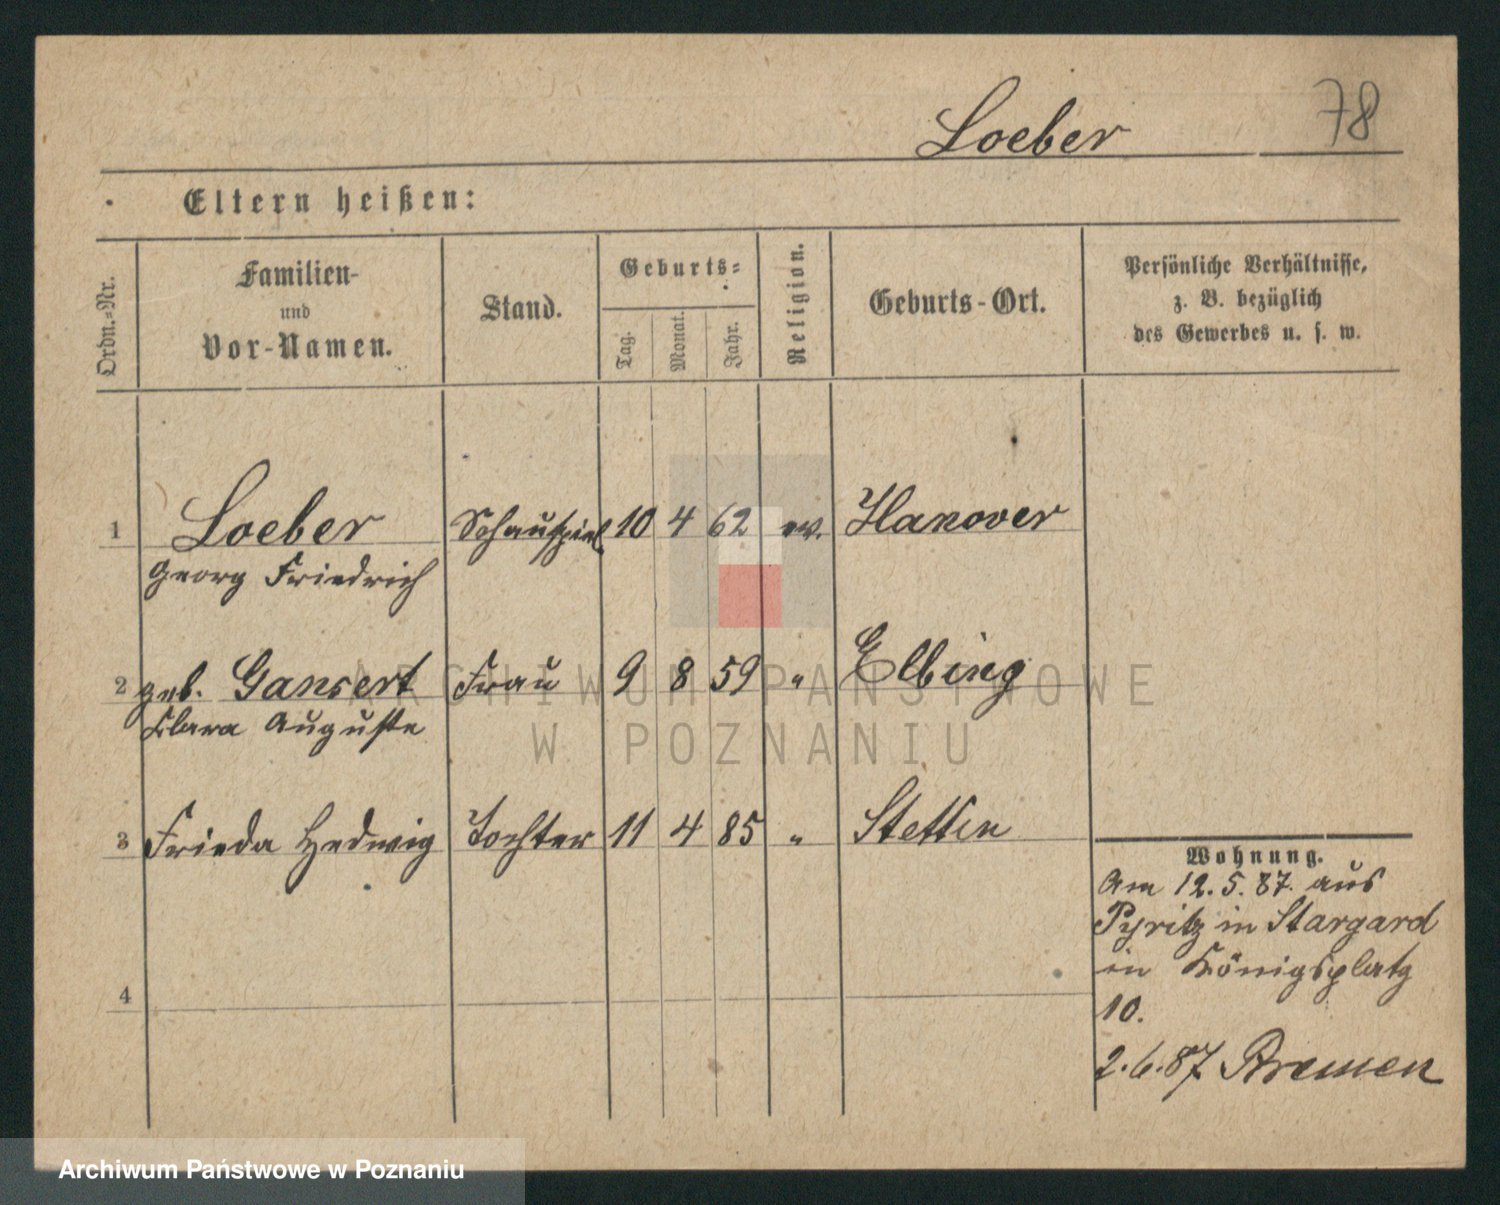 Loeber 78
Eltern heißen:
Ordn.-Nr.
Familien-
und
Vor-Namen.
Stand.
Geburts-
Tag.
Monat.
Jahr.
Religion.
Geburts-Ort.
Persönliche Verhältnisse,
z. B. bezüglich
des Gewerbes u. s. w.
1 Loeber Schauspiel. 10 4 62 ev. Hanover
Georg Friedrich
2 geb. Gansert Frau 9 8 59 " Elbing
Klara Auguste
3 Frieda Hedwig Tochter 11 4 85 " Stettin
4
Wohnung.
Am 12.5.87. aus
Pyritz in Stargard
in Königsplatz
10.
2.6.87 Bremen
ARCHIWUM PAŃSTWOWE
W POZNANIU
Archiwum Państwowe w Poznaniu